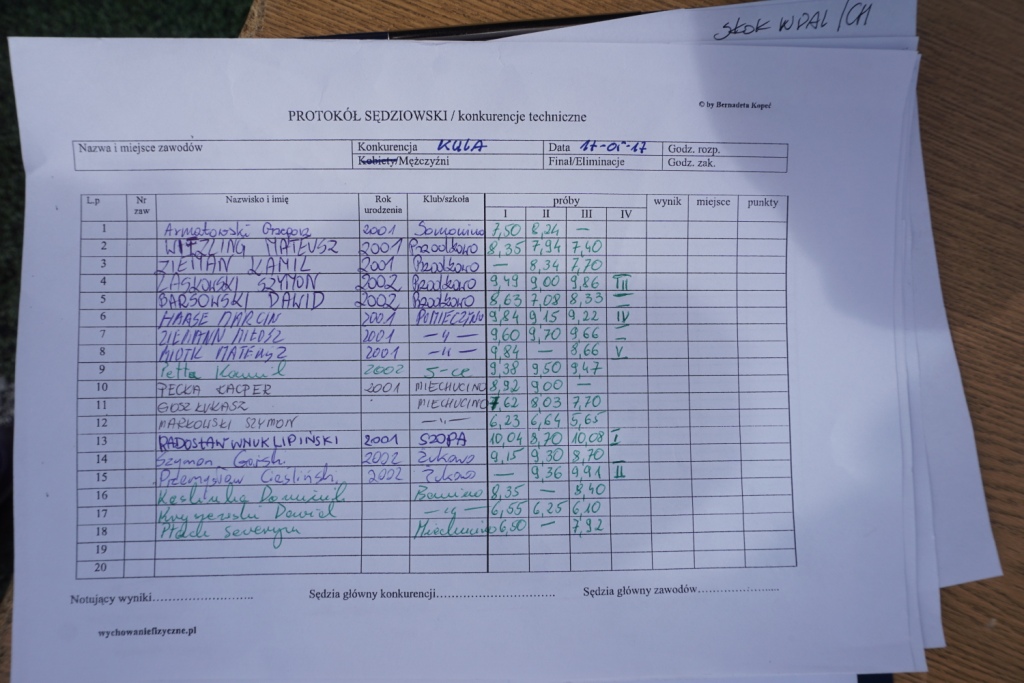 SKOK W DAL /CH
© by Bernadeta Kopeć
PROTOKÓŁ SĘDZIOWSKI / konkurencje techniczne
Nazwa i miejsce zawodów Konkurencja KULA Data Godz. rozp.
Kobiety/Mężczyźni Finał/Eliminacje Godz. zak.
L.p Nr zaw Nazwisko i imię Rok urodzenia Klub/szkoła próby wynik miejsce punkty
I II III IV
1 Armatowski Grzegorz 2001 Somonino 7,50 8,24 —
2 MATEUSZ 2001 Przodkowo 8,35 7,94 7,40
3 ZIEMAN KAMIL 2001 Przodkowo — 8,34 7,70
4 LASKOWSKI SZYMON 2002 Przodkowo 9,49 9,00 9,86 III
5 BARSOWSKI DAWID 2002 Przodkowo 8,63 7,08 8,33 —
6 HAASE MARCIN 2001 POMIECZYNO 9,84 9,15 9,22 IV
7 ZIEMANN MIŁOSZ 2001 —"— 9,60 9,70 9,66 —
8 MATEUSZ 2001 —"— 9,84 — 8,66 V
9 Petta Kamil 2002 S-ce 9,38 9,50 9,47
10 PECKA KACPER 2001 MIECHUCINO 8,92 9,00 —
11 GOSZ ŁUKASZ MIECHUCINO 7,62 8,03 7,70
12 MARKOWSKI SZYMON —"— 6,23 6,64 5,65
13 RADOSŁAW WNUK LIPIŃSKI 2001 SZOPA 10,04 8,70 10,08 I
14 Szymon 2002 Żukowo 9,15 9,30 8,70
15 Przemysław Ciesliński 2002 Żukowo — 9,36 9,91 II
16 Dominik Borzino 8,35 — 8,40
17 Dawid —"— 6,55 6,25 6,10
18 Ptach Seweryn Miechucino 6,50 — 7,92
19
20
Notujący wyniki............................ Sędzia główny konkurencji................................ Sędzia główny zawodów......................
wychowaniefizyczne.pl